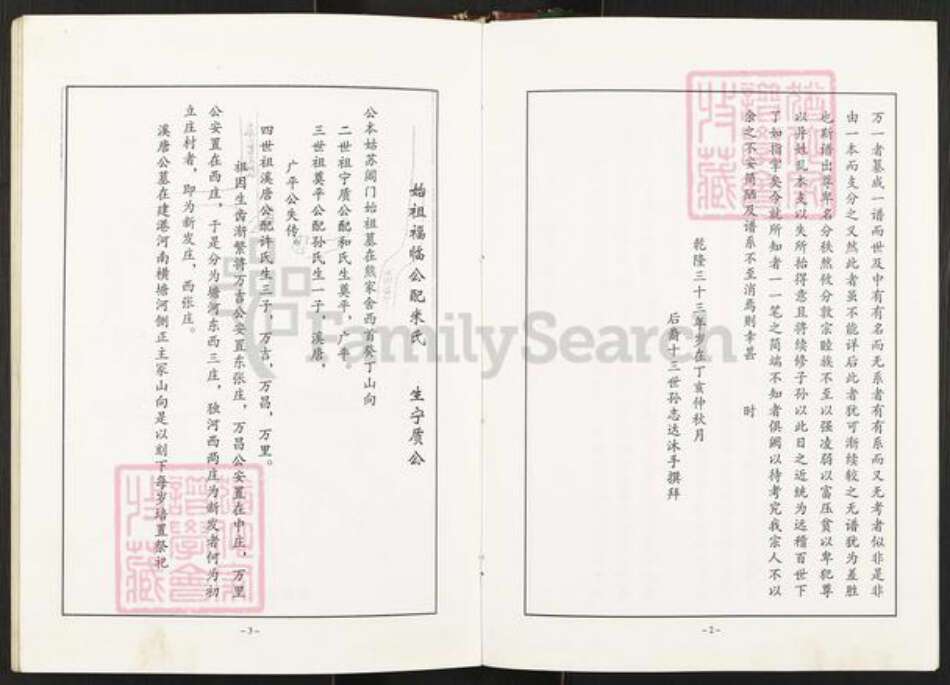 万一者纂成一谱而世及中有有名而无系者有有系而又无考者似非是非
由一本而支分之又然此者虽不能详后此者犹可渐续较之无谱犹为差胜
也斯谱出尊卑名分秩然攸分敦宗睦族不至以强凌弱以富压贫以卑犯尊
以异姓乱本支以失所抬得意且将续修子孙以此日之近统为远稽百世下
了如指掌矣今就所知者一一笔之简端不知者俱阙以待考究我宗人不以
余之不安简陋及谱系不至消焉则幸甚 时
乾隆三十三年岁在丁亥仲秋月
后裔十三世孙志达沐手撰拜
-2-
始祖福临公配朱氏 生宁质公
公本姑苏阊门始祖墓在熊家舍西首癸丁山向
二世祖宁质公配和氏生奠平，广平。
三世祖奠平公配孙氏生一子，溪唐，
广平公失传。
四世祖溪唐公配许氏生三子，万言，万昌，万里。
祖因生齿渐繁将万言公安置东张庄，万昌公安置在中庄，万里
公安置在西庄，于是分为塘河东西三庄，独河西两庄为新发者何为初
立庄村者，即为新发庄，西张庄。
溪唐公墓在建港河南横塘河侧正主冢山向是以刻下每岁培置祭祀
-3-
FamilySearch